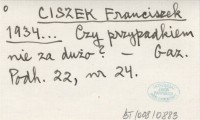 CISZEK Franciszek
1934... Czy przypadkiem
nie za dużo? - Gaz.
Podh. 22, nr 24.